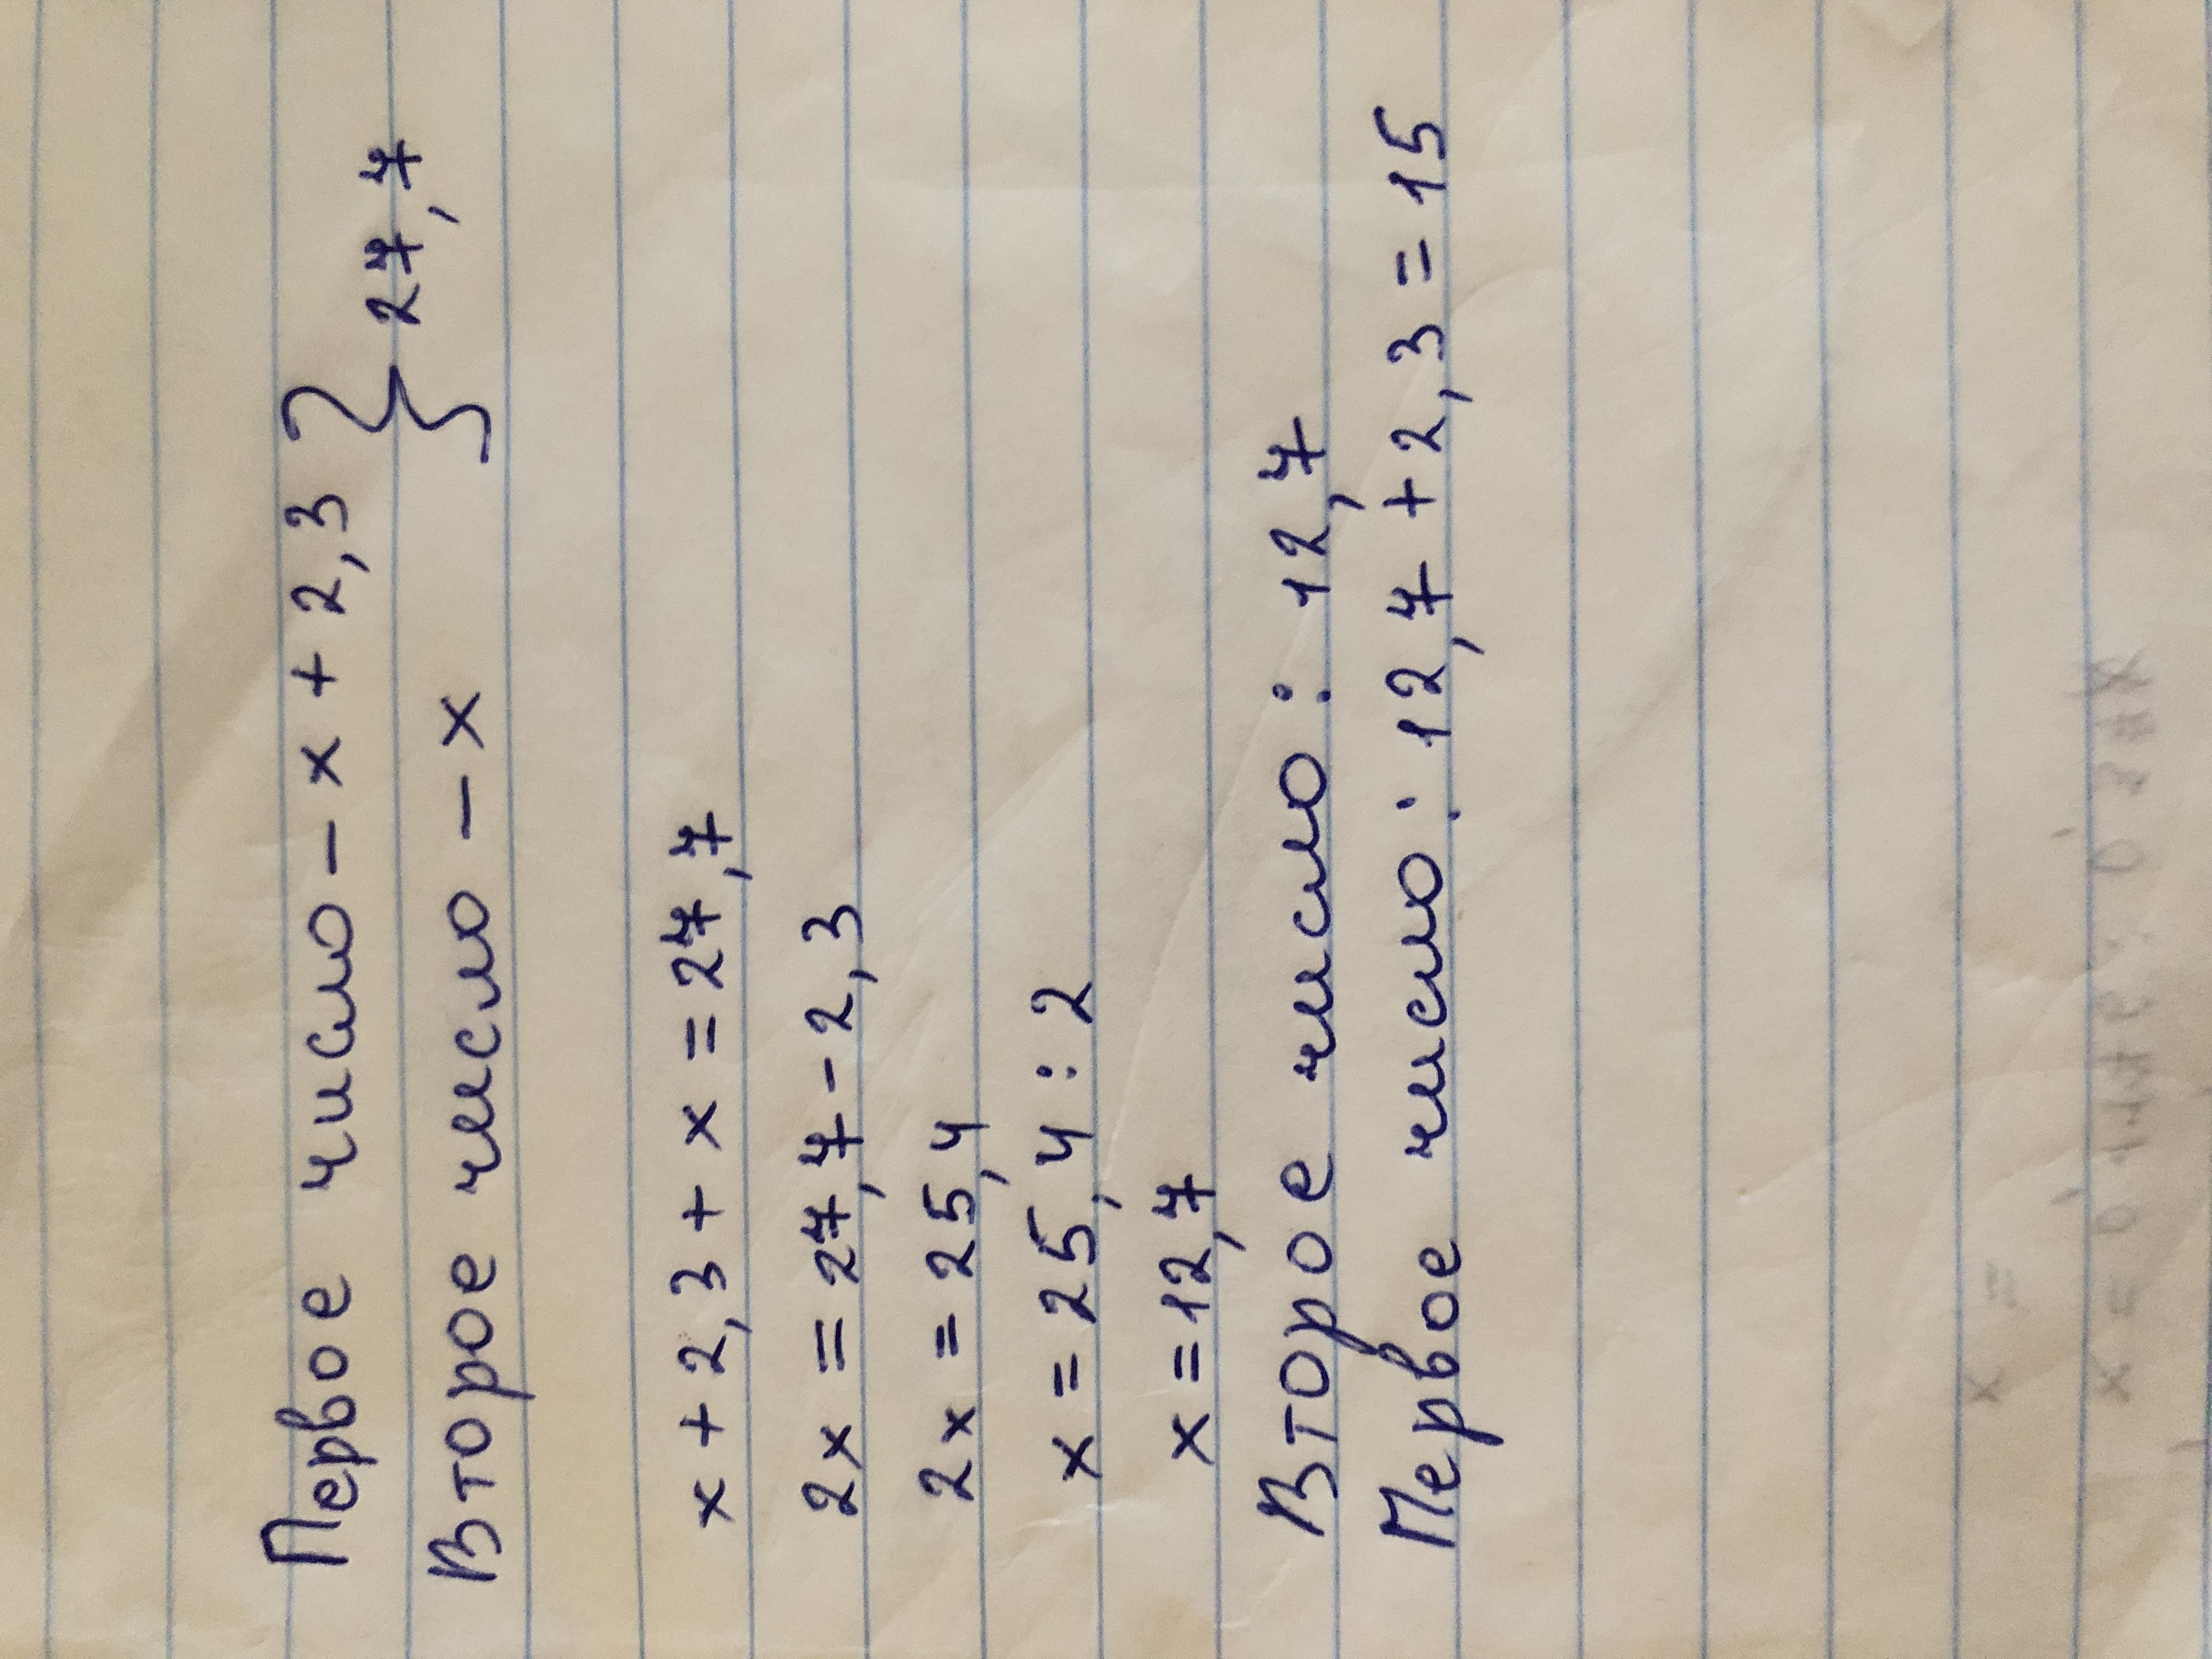 Первое число - x + 2,3 } 27,7
Второе число - x
x + 2,3 + x = 27,7
2x = 27,7 - 2,3
2x = 25,4
x = 25,4 : 2
x = 12,7
Второе число : 12,7
Первое число : 12,7 + 2,3 = 15